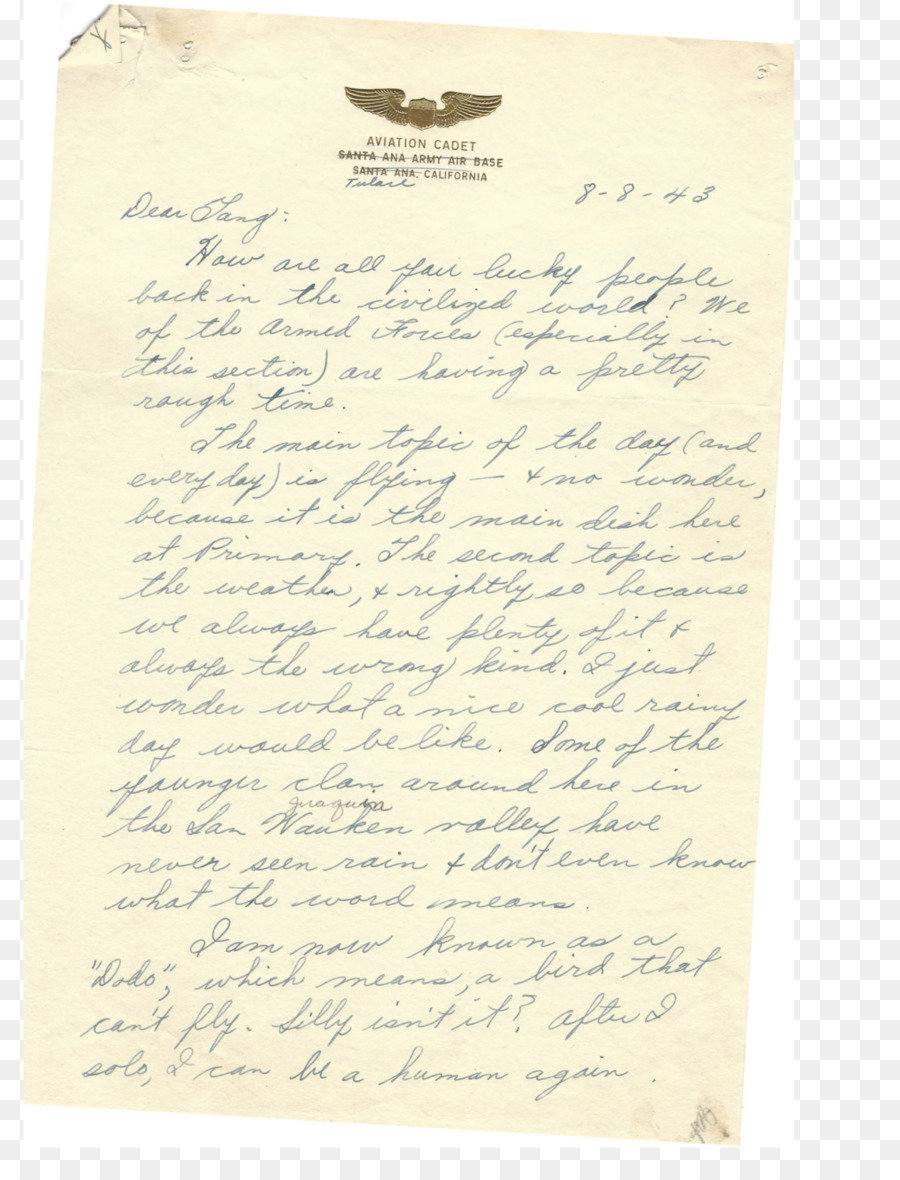 AVIATION CADET
SANTA ANA ARMY AIR BASE
SANTA ANA, CALIFORNIA
Tulare
8-8-43
Dear Gang:
How are all you lucky people
back in the civilized world? We
of the Armed Forces (especially in
this section) are having a pretty
rough time.
The main topic of the day (and
every day) is flying — & no wonder,
because it is the main dish here
at Primary. The second topic is
the weather, & rightly so because
we always have plenty of it &
always the wrong kind. I just
wonder what a nice cool rainy
day would be like. Some of the
younger clan around here in
Juaquin
the San Wauken valley have
never seen rain & don't even know
what the word means.
I am now known as a
"Dodo", which means, a bird that
can't fly. Silly isn't it? After I
solo, I can be a human again.